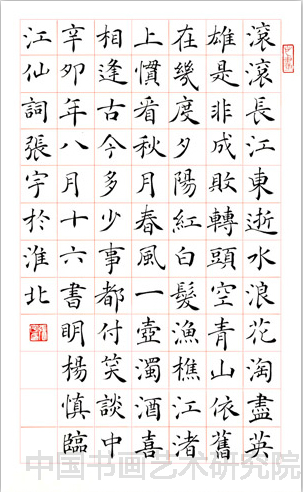 滾滾長江東逝水浪花淘盡英
雄是非成敗轉頭空青山依舊
在幾度夕陽紅白髮漁樵江渚
上慣看秋月春風一壺濁酒喜
相逢古今多少事都付笑談中
辛卯年八月十六書明楊慎臨
江仙詞張宇於淮北
中国书画艺术研究院